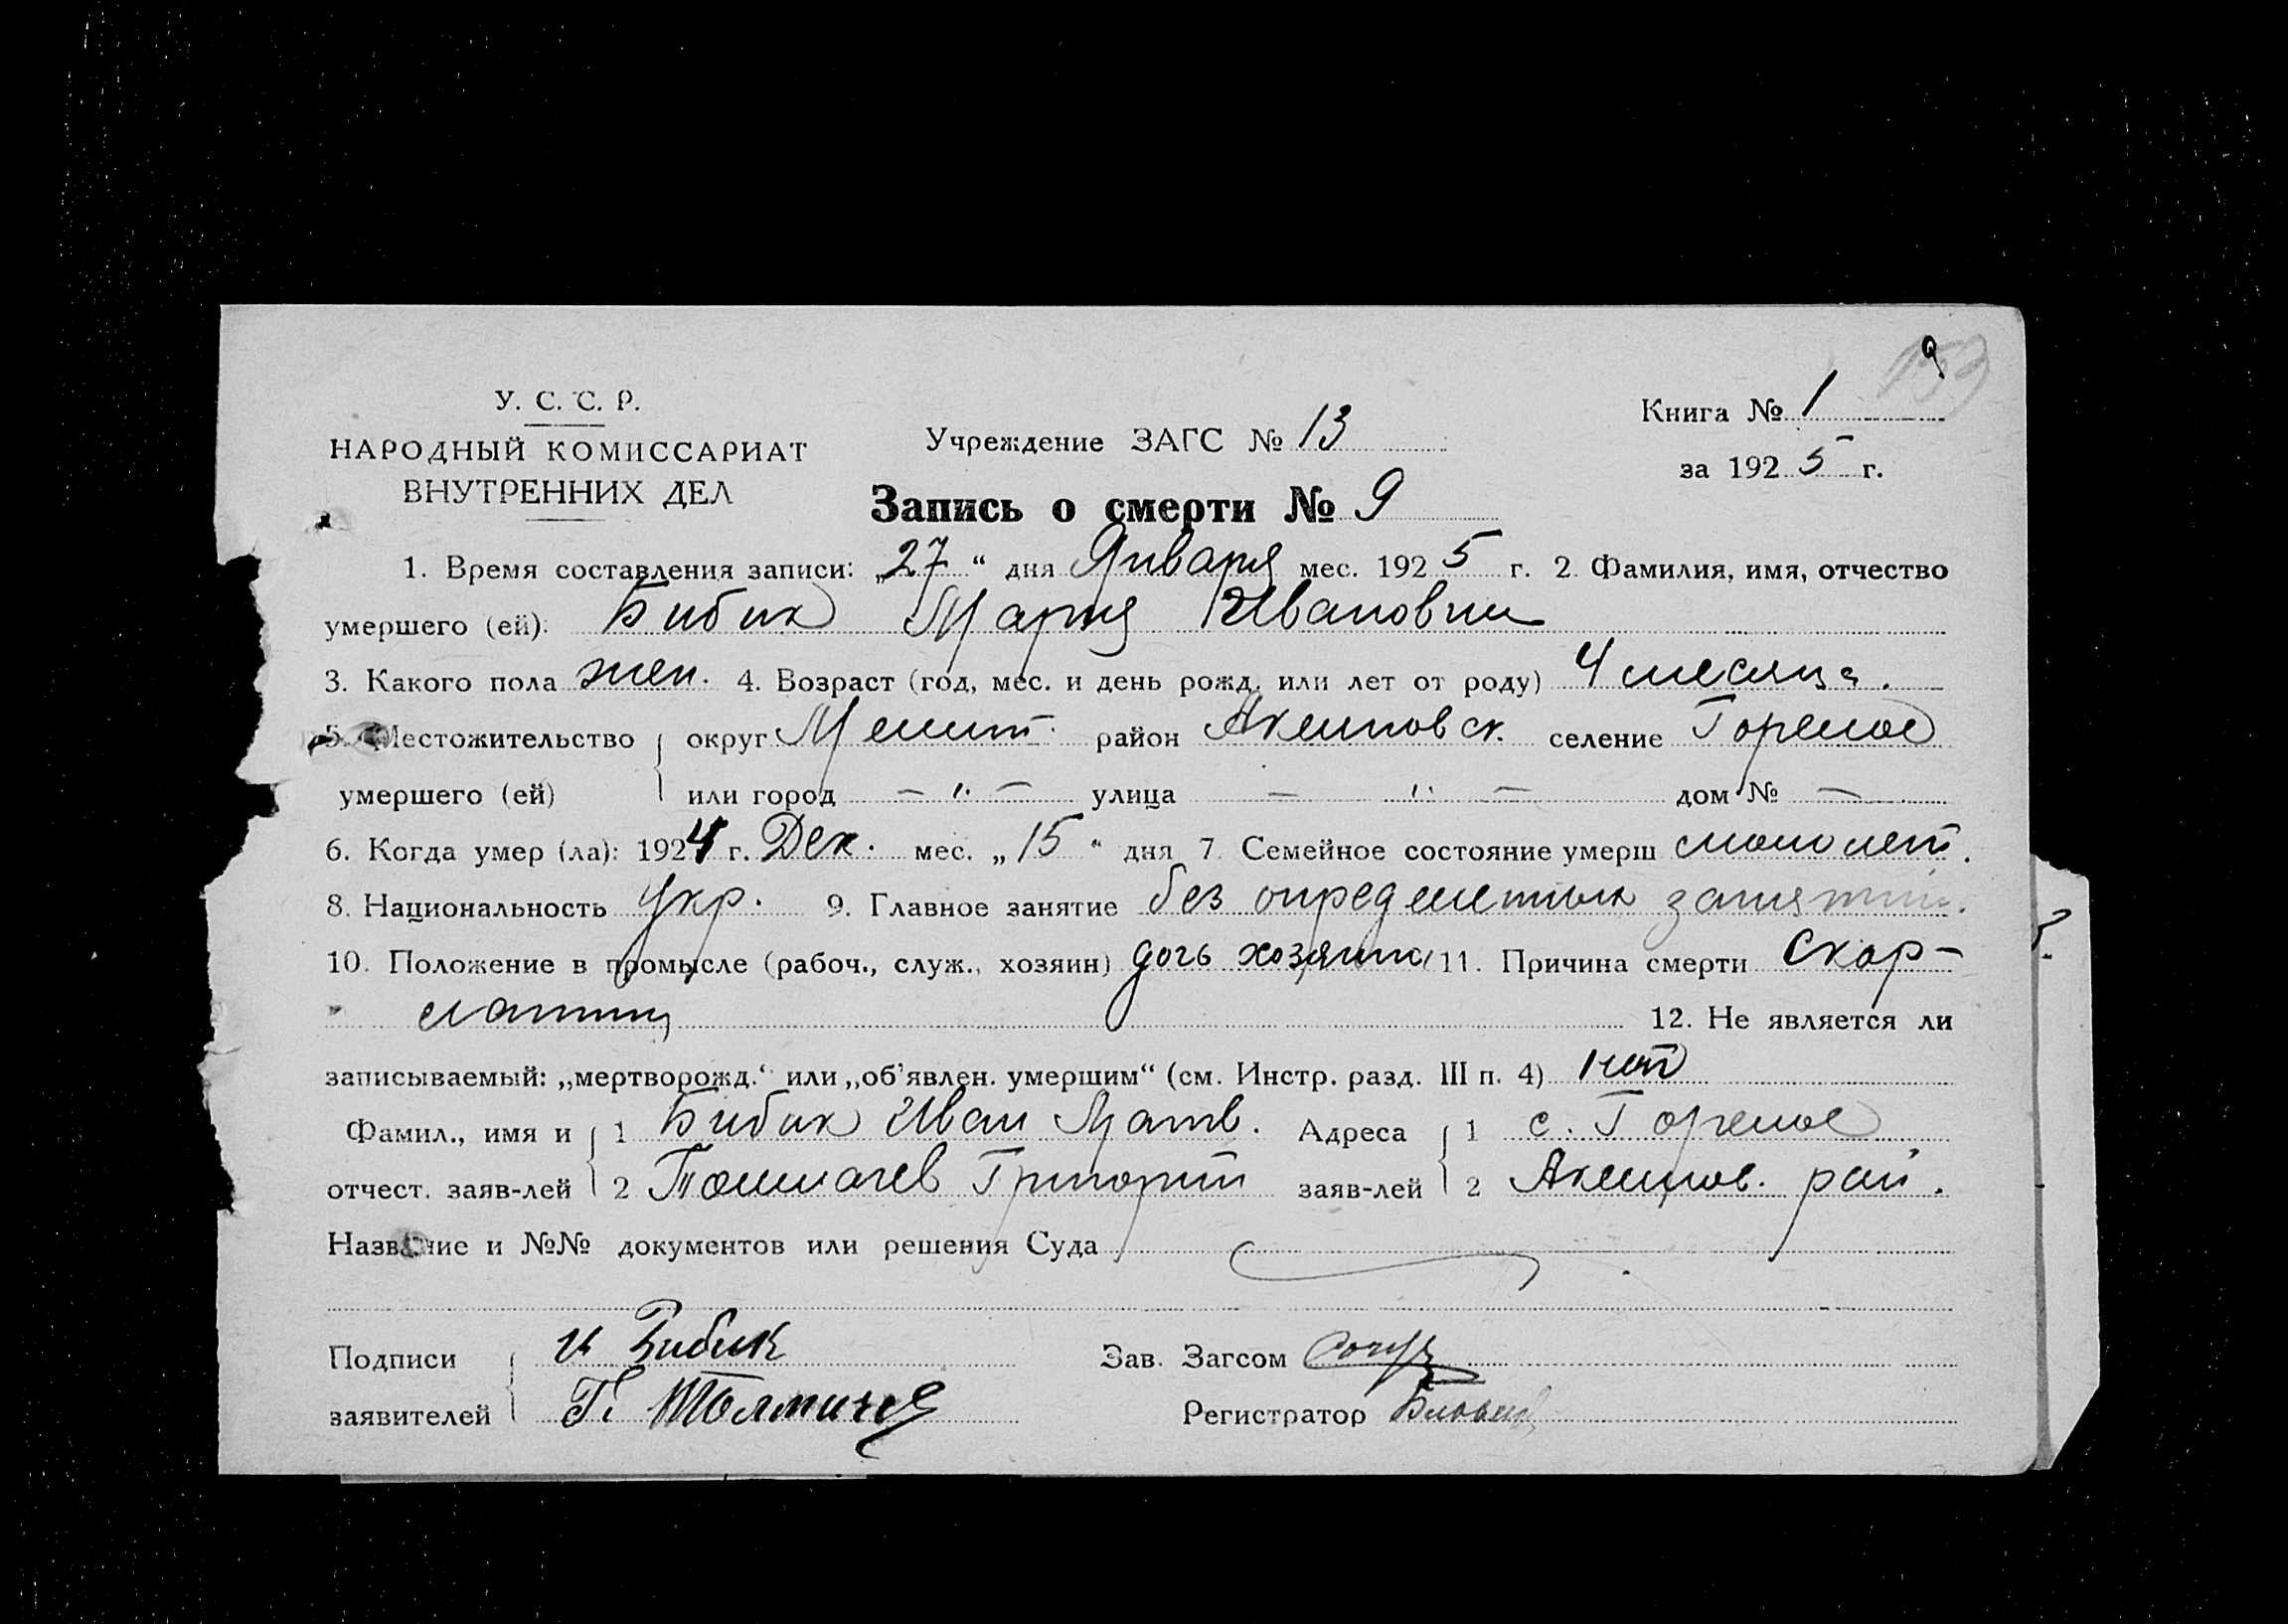 159
9
У. С. С. Р.
НАРОДНЫЙ КОМИССАРИАТ
ВНУТРЕННИХ ДЕЛ
Учреждение ЗАГС № 13
Книга № 1
за 1925 г.
Запись о смерти № 9
1. Время составления записи: „27“ дня Января мес. 1925 г. 2. Фамилия, имя, отчество
умершего (ей): Бибик Мария Ивановна
3. Какого пола жен. 4. Возраст (год, мес. и день рожд. или лет от роду) 4 месяца.
5. Местожительство округ Мелит. район Акимовск. селение Горелое
умершего (ей) или город — „ — улица — „ — дом № —
6. Когда умер (ла): 1924 г. Дек. мес. „15“ дня 7. Семейное состояние умерш малолет.
8. Национальность Укр. 9. Главное занятие без определенных занятий.
10. Положение в промысле (рабоч., служ., хозяин) дочь хозяина 11. Причина смерти Скар-
латина 12. Не является ли
записываемый: „мертворожд.“ или „об'явлен. умершим“ (см. Инстр. разд. III п. 4) нет
Фамил., имя и 1 Бибик Иван Матв. Адреса 1 с. Горелое
отчест. заяв-лей 2 Толмачев Григорий заяв-лей 2 Акимов. рай.
Название и №№ документов или решения Суда
Подписи И Бибик Зав. Загсом
заявителей Г. Толмачев Регистратор